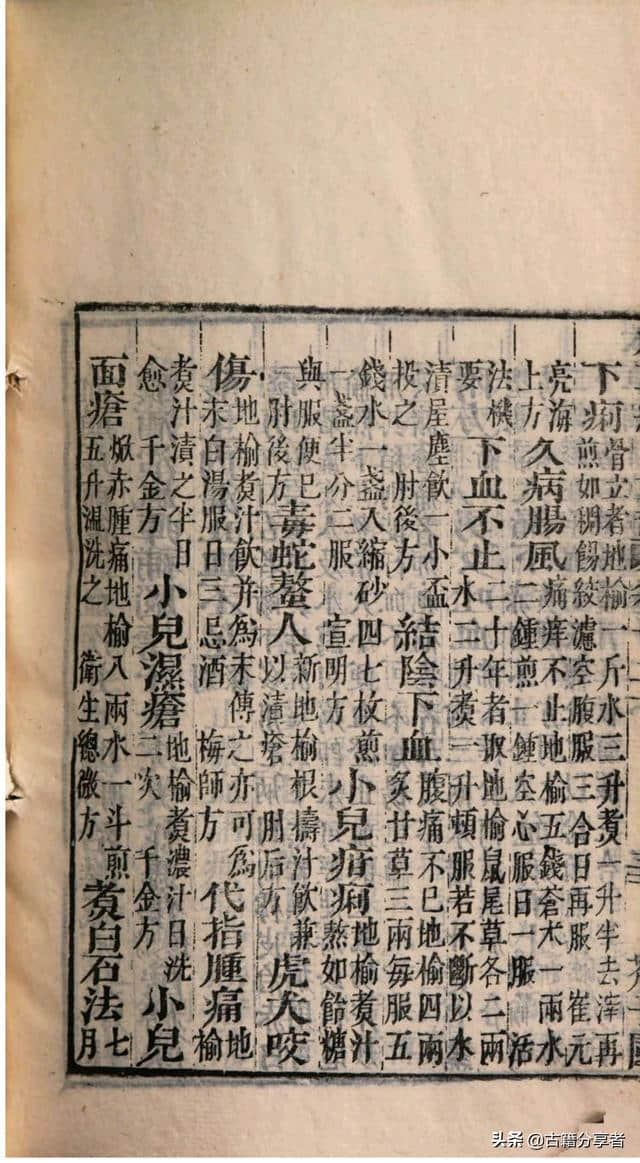 下痢骨立者地榆一斤水三升煮一升半去滓再煎如稠餳絞濾空腹服三合日再服 崔元
亮海上方 久病腸風痛痒不止地榆五錢蒼朮一兩水二鍾煎一鍾空心服日一服 活
法機要 下血不止二十年者取地榆鼠尾草各二兩水二升煮一升頓服若不斷以水
漬屋塵飲一小盃投之 肘後方 結陰下血腹痛不已地榆四兩炙甘草三兩每服五
錢水一盞入縮砂四七枚煎一盞半分二服 宣明方 小兒疳痢地榆煮汁熬如飴糖
與服便已 肘後方 毒蛇螫人新地榆根擣汁飲兼以漬瘡 肘后方 虎犬咬
傷地榆煮汁飲并爲末傅之亦可爲末白湯服日三忌酒 梅師方 代指腫痛地榆
煮汁漬之半日愈 千金方 小兒濕瘡地榆煮濃汁日洗二次 千金方 小兒
面瘡焮赤腫痛地榆八兩水一斗煎五升溫洗之 衛生總微方 煮白石法七月
头条 @古籍分享者